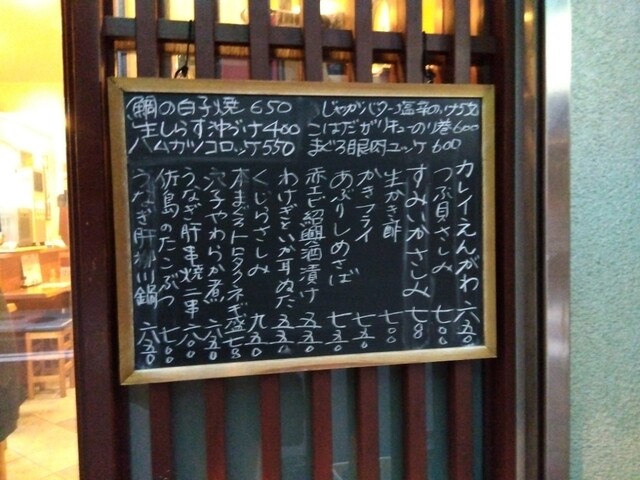 鯛の白子焼 650
生しらす沖づけ400
ハムカツコロッケ550
じゃがバター塩辛のっけ
こはだガリキューのり巻600
まぐろ眼肉ユッケ600
カレイえんがわ 六五〇
つぶ貝さしみ 七〇〇
すみいかさしみ 七八〇
生かき酢 七〇〇
かきフライ 七五〇
あぶりしめさば 七五〇
赤エビ紹興酒漬け 五五〇
わけぎといが耳ぬた 五五〇
くじらさしみ 九五〇
本まぐろトロタクネギ盛 七八〇
穴子やわらか煮 六五〇
うなぎ肝串焼二串 六〇〇
佐島のたこぶつ 七〇〇
うなぎ肝柳川鍋 六五〇